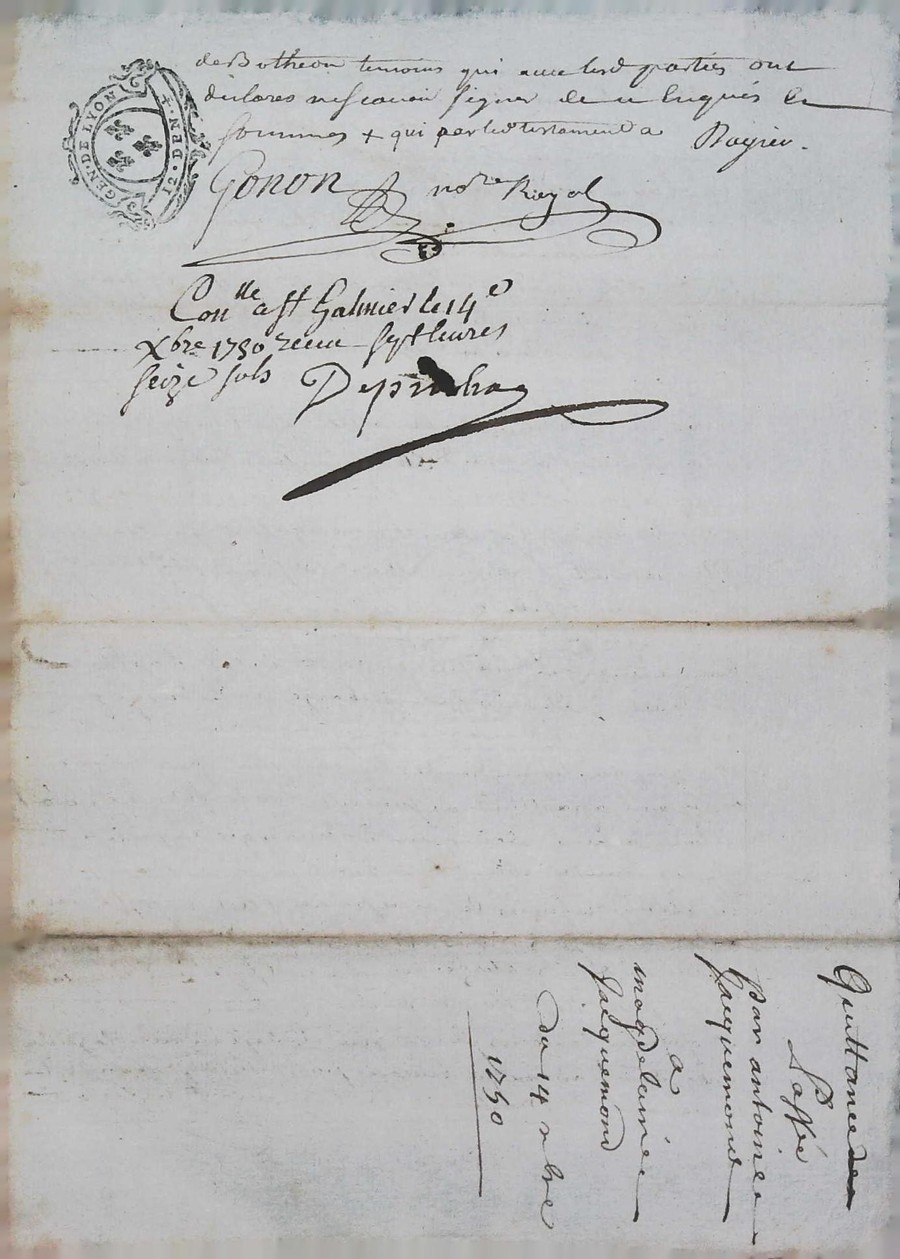 GEN·DE LYON
12·DEN·
de Botheon temoins qui avec lesd parties ont
declarés ne scavoir signer de ce enquis les
sommes + qui par led testament a Royer.
Gonon nore Royal
Conlle a St Galmier le 14e
Xbre 1750 receu sept livres
seize sols
Quittance
passé
par antoine
Jacquemond
a
magdelaine
Jacquemond
du 14 xbre
1750